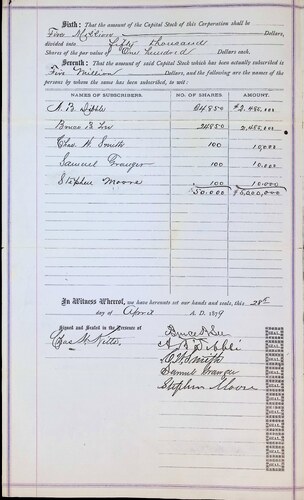 Sixth: That the amount of the Capital Stock of this Corporation shall be
Five Million Dollars,
divided into Fifty thousand
Shares of the par value of One hundred Dollars each.
Seventh: That the amount of said Capital Stock which has been actually subscribed is
Five Million Dollars, and the following are the names of the
persons by whom the same has been subscribed, to wit:
NAMES OF SUBSCRIBERS. NO. OF SHARES AMOUNT.
A. B. Dibble 24850 $2,485,000
Bruce B. Lee 24850 2,485,000
Chas H. Smith 100 10,000
Samuel Granger 100 10,000
Stephen Moore 100 10,000
50,000 $5,000,000
In Witness Whereof, we have hereunto set our hands and seals, this 28th
day of April A. D. 1879
Signed and Sealed in the Presence of Bruce B. Lee
Chas. A. B. Dibble
C H Smith
Samuel Granger
Stephen Moore
SEAL
SEAL
SEAL
SEAL
SEAL
SEAL
SEAL